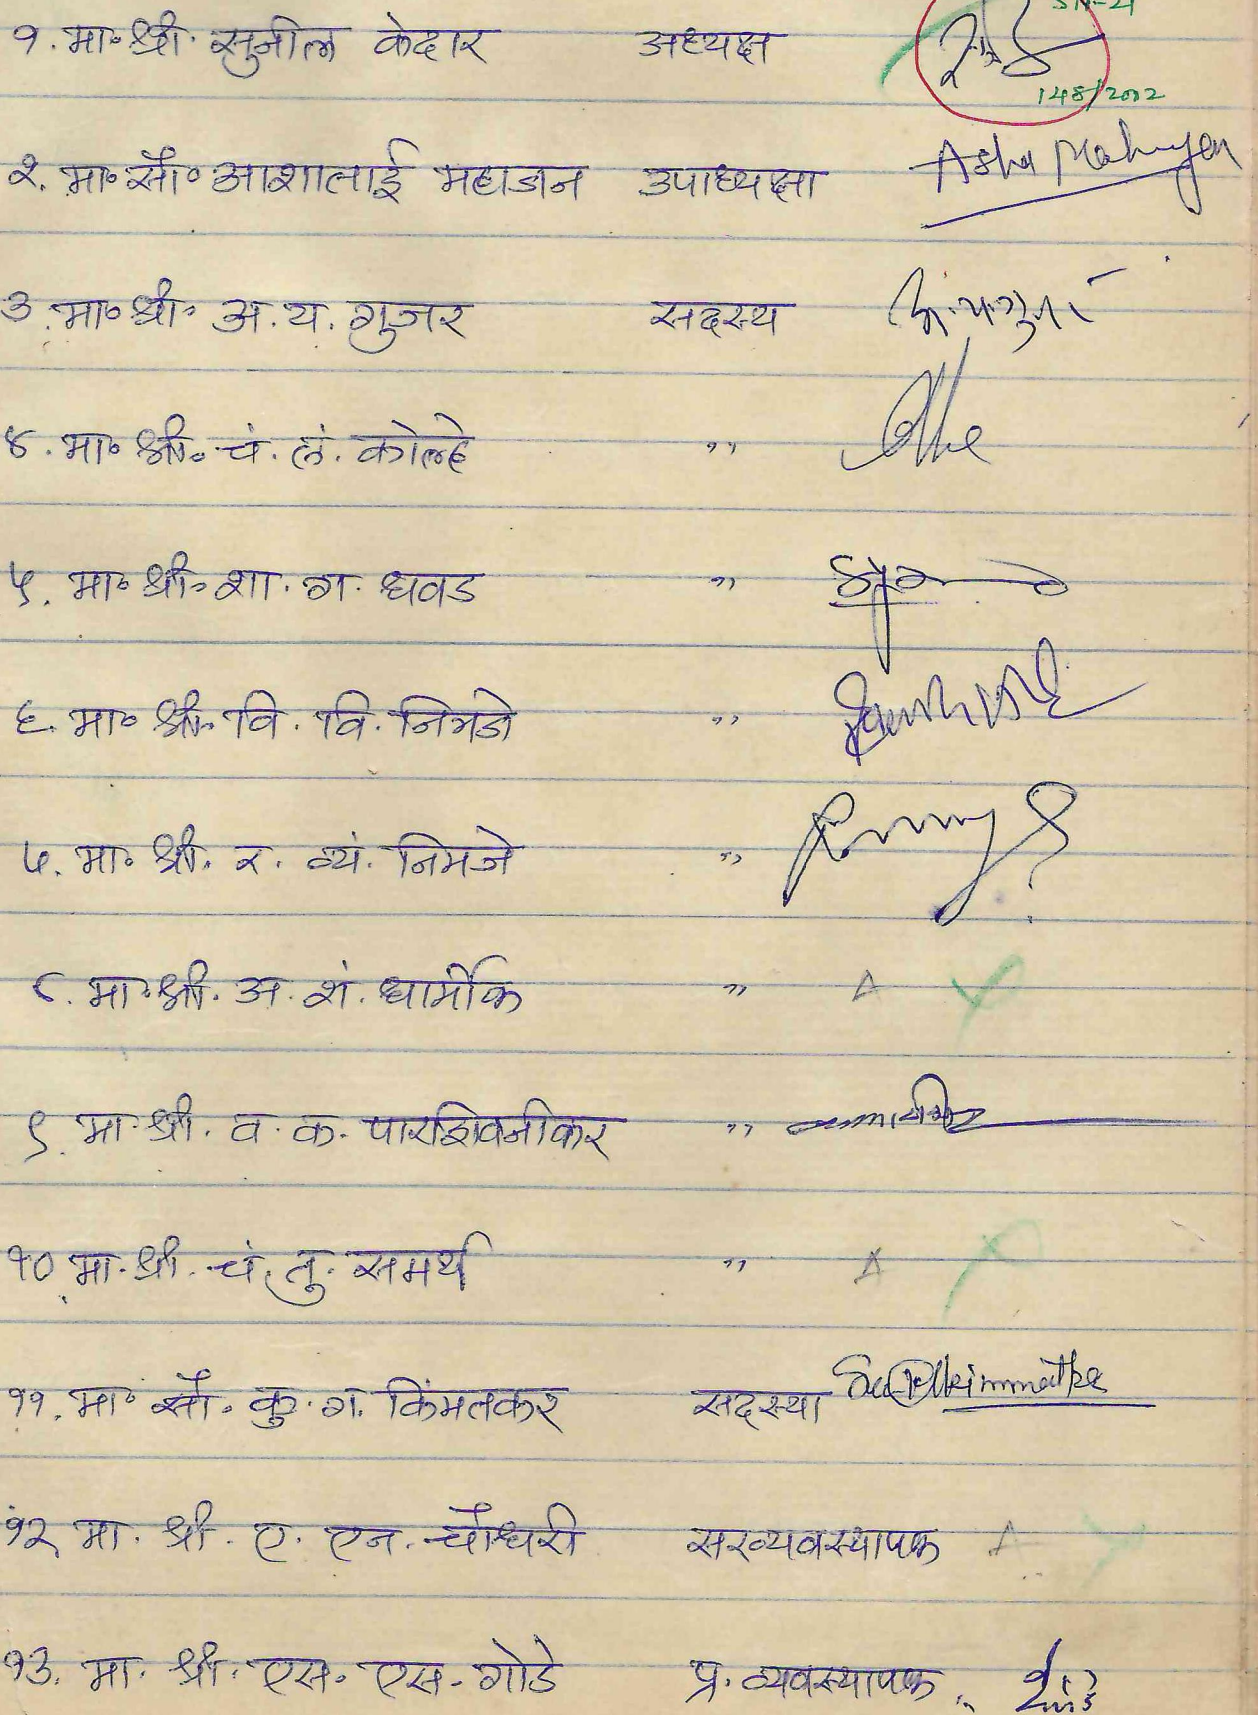 १. मा॰ श्री. सुनील केदार अध्यक्ष
148/2002
२. मा॰ सौ॰ आशाताई महाजन उपाध्यक्षा Asha Mahajan
३. मा॰ श्री॰ अ. य. गुजर सदस्य अ. य. गुजर
४. मा॰ श्री॰ चं. लं. कोल्हे "
५. मा॰ श्री॰ शा. ग. धवड "
६. मा॰ श्री॰ वि. वि. निमजे "
७. मा॰ श्री. र. व्यं. निमजे "
८. मा॰ श्री. अ. शं. धार्मीक " A
९. मा. श्री. व. क. पारशिवनीकर "
१० मा. श्री. चं. तु. समर्थ " A
११. मा॰ सौ. कु. ग. किंमतकर सदस्या
१२ मा. श्री. ए. एन. चौधरी सरव्यवस्थापक A
१३. मा. श्री. एस. एस. गोडे प्र. व्यवस्थापक